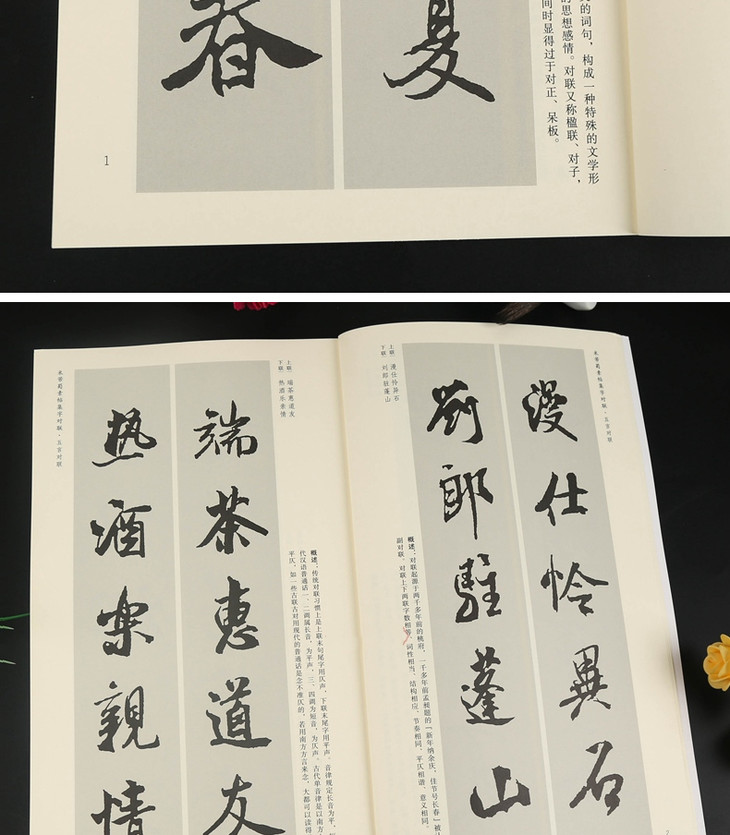 夏
春
的词句，构成一种特殊的文学形
的思想感情。对联又称楹联、对子，
间时显得过于对正、呆板。
1
米芾蜀素帖集字对联·五言对联
漫仕怜异石
刘郎驻蓬山
上联：漫仕怜异石
下联：刘郎驻蓬山
概述：对联起源于两千多年前的桃符，一千多年前孟昶题的「新年纳余庆，佳节号长春」被
副对联。对联上下两联字数相等，词性相当、结构相应，节奏相同，平仄相谐、意义相同。
端茶惠道友
热酒乐亲情
上联：端茶惠道友
下联：热酒乐亲情
概述：传统对联习惯上是上联末句尾字用仄声，下联末尾字用平声。音律规定长音为平，
代汉语普通话一、二调属长音，为平声，三、四调为短音，为仄声。古代单音律是以南方
平仄，如一些古联古对用现代的普通话是念不准仄的，若用南方方言来念，大都可以读得
米芾蜀素帖集字对联·五言对联
2